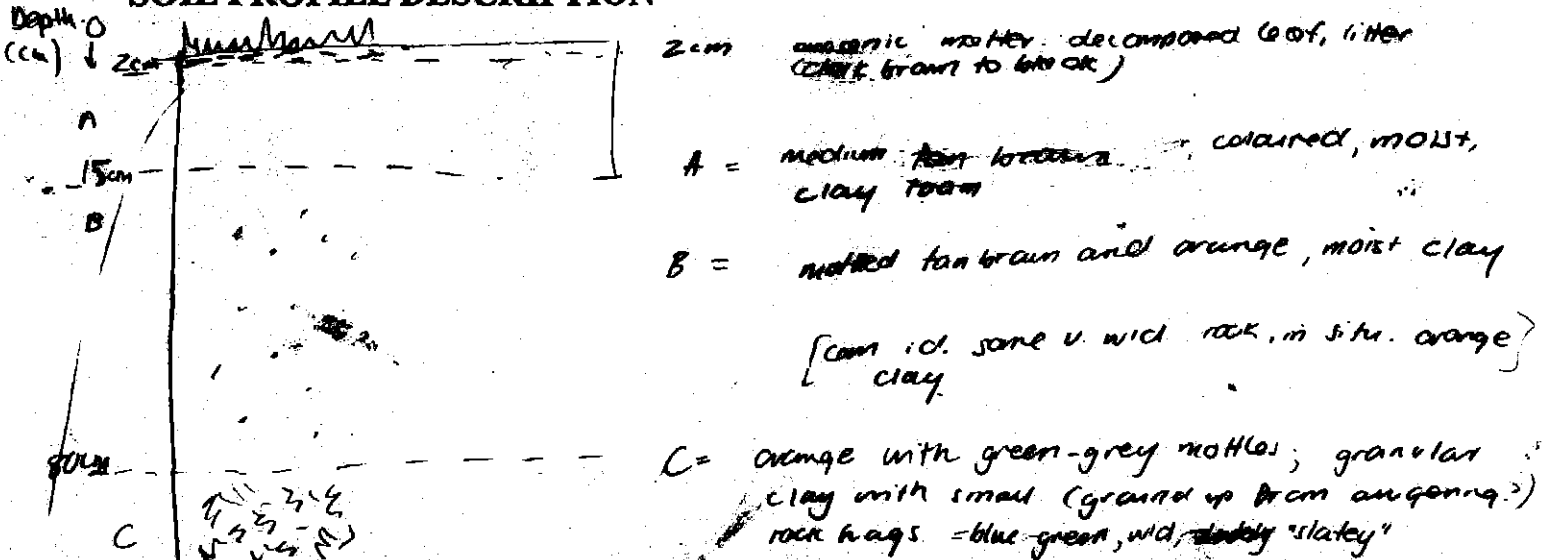 SOIL PROFILE DESCRIPTION
Depth O
(cm) ↓ 2cm
2cm organic matter. decomposed leaf, litter
(dark brown to black)
A
15cm
A = medium tan brown coloured, moist,
clay loam
B
B = mottled tan brown and orange, moist clay
[can id. some v. w'd rock, in situ. orange]
clay
80cm
C = orange with green-grey mottles; granular
clay with small (ground up from augering?)
C
rock frags = blue-green, w'd, "slatey"